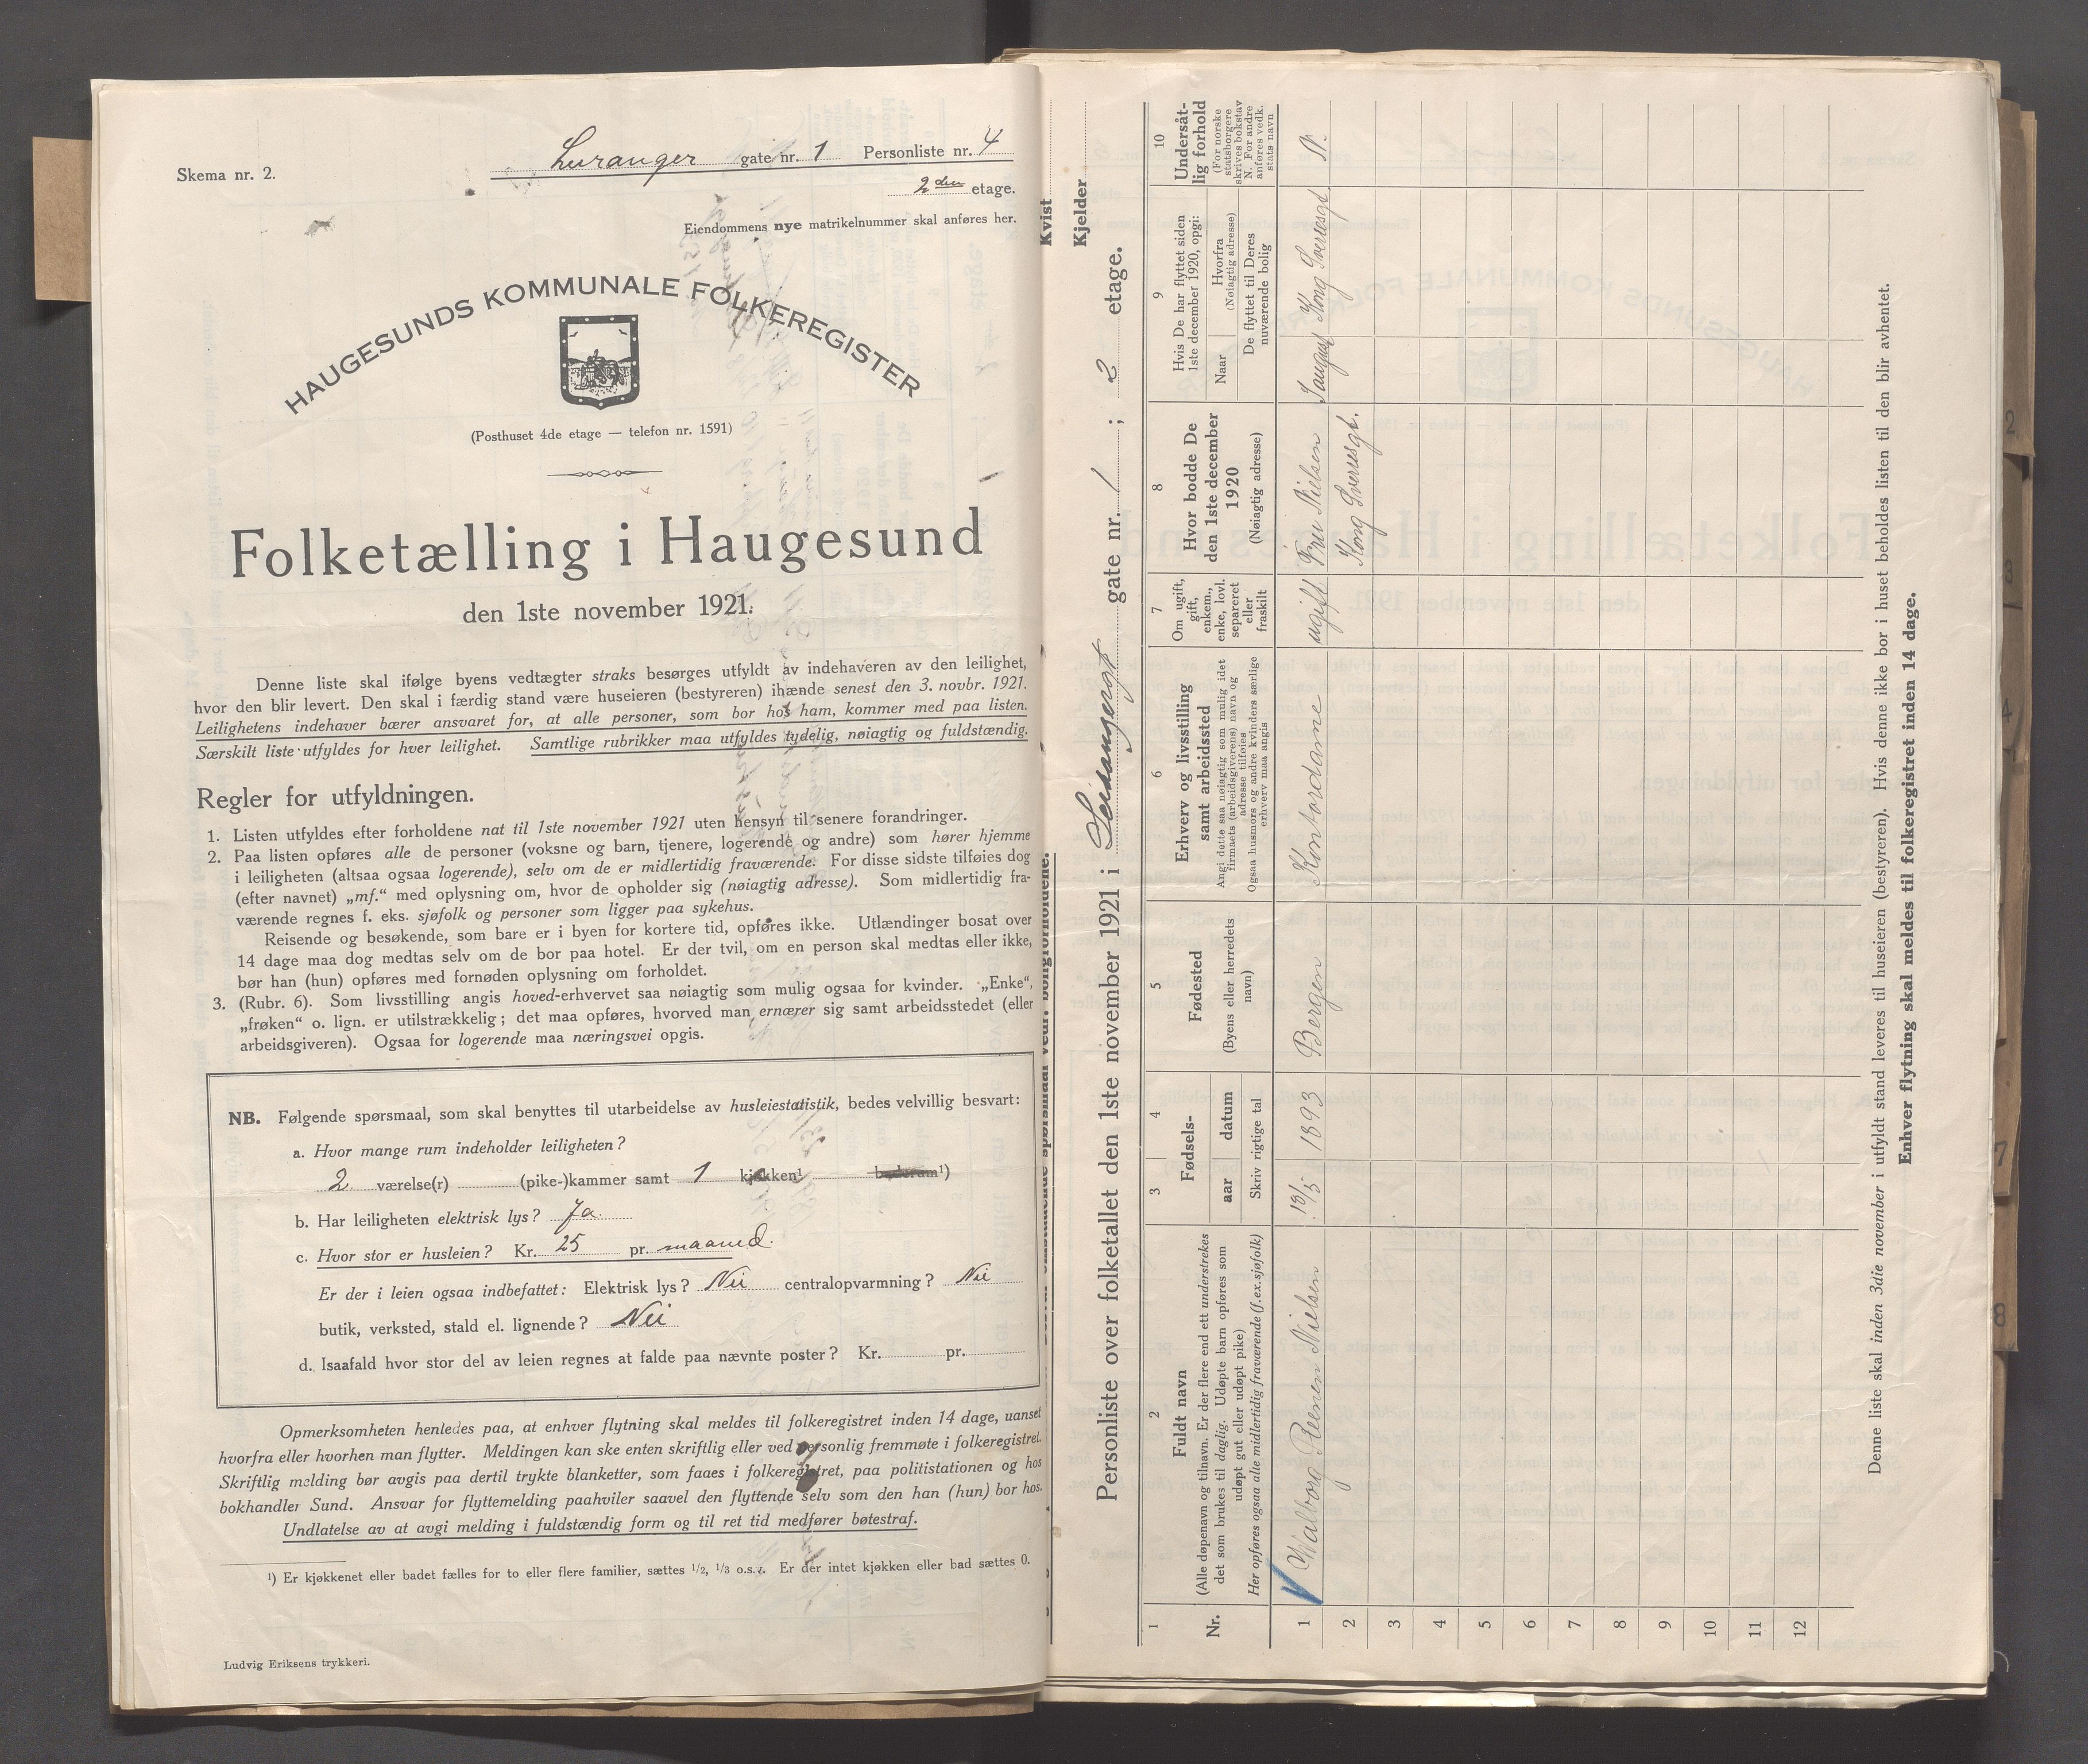 Skema nr. 2.
Luranger gate nr. 1 Personliste nr. 4
2den etage.
Eiendommens nye matrikelnummer skal anføres her.
HAUGESUNDS KOMMUNALE FOLKEREGISTER
(Posthuset 4de etage — telefon nr. 1591)
Folketælling i Haugesund
den 1ste november 1921.
Denne liste skal ifølge byens vedtægter straks besørges utfyldt av indehaveren av den leilighet,
hvor den blir levert. Den skal i færdig stand være huseieren (bestyreren) ihænde senest den 3. novbr. 1921.
Leilighetens indehaver bærer ansvaret for, at alle personer, som bor hos ham, kommer med paa listen.
Særskilt liste utfyldes for hver leilighet. Samtlige rubrikker maa utfyldes tydelig, nøiagtig og fuldstændig.
Regler for utfyldningen.
1. Listen utfyldes efter forholdene nat til 1ste november 1921 uten hensyn til senere forandringer.
2. Paa listen opføres alle de personer (voksne og barn, tjenere, logerende og andre) som hører hjemme
i leiligheten (altsaa ogsaa logerende), selv om de er midlertidig fraværende. For disse sidste tilføies dog
(efter navnet) „mf.“ med oplysning om, hvor de opholder sig (nøiagtig adresse). Som midlertidig fra-
værende regnes f. eks. sjøfolk og personer som ligger paa sykehus.
Reisende og besøkende, som bare er i byen for kortere tid, opføres ikke. Utlændinger bosat over
14 dage maa dog medtas selv om de bor paa hotel. Er der tvil, om en person skal medtas eller ikke,
bør han (hun) opføres med fornøden oplysning om forholdet.
3. (Rubr. 6). Som livsstilling angis hoved-erhvervet saa nøiagtig som mulig ogsaa for kvinder. „Enke“,
„frøken“ o. lign. er utilstrækkelig; det maa opføres, hvorved man ernærer sig samt arbeidsstedet (eller
arbeidsgiveren). Ogsaa for logerende maa næringsvei opgis.
NB. Følgende spørsmaal, som skal benyttes til utarbeidelse av husleiestatistik, bedes velvillig besvart:
a. Hvor mange rum indeholder leiligheten?
2 værelse(r) (pike-)kammer samt 1 kjøkken¹ baderum¹)
b. Har leiligheten elektrisk lys? Ja.
c. Hvor stor er husleien? Kr. 25 pr. maaned.
Er der i leien ogsaa indbefattet: Elektrisk lys? Nei centralopvarmning? Nei
butik, verksted, stald el. lignende? Nei
d. Isaafald hvor stor del av leien regnes at falde paa nævnte poster? Kr. pr.
Opmerksomheten henledes paa, at enhver flytning skal meldes til folkeregistret inden 14 dage, uanset
hvorfra eller hvorhen man flytter. Meldingen kan ske enten skriftlig eller ved personlig fremmøte i folkeregistret.
Skriftlig melding bør avgis paa dertil trykte blanketter, som faaes i folkeregistret, paa politistationen og hos
bokhandler Sund. Ansvar for flyttemelding paahviler saavel den flyttende selv som den han (hun) bor hos.
Undlatelse av at avgi melding i fuldstændig form og til ret tid medfører bøtestraf.
¹) Er kjøkkenet eller badet fælles for to eller flere familier, sættes 1/2, 1/3 o.s.v. Er der intet kjøkken eller bad sættes 0.
Ludvig Eriksens trykkeri.
Kvist
Kjelder
Personliste over folketallet den 1ste november 1921 i gate nr. 1 ; 2 etage.
1 2 3 4 5 6 7 8 9 10
Nr.
Fuldt navn
(Alle døpenavn og tilnavn. Er der flere end ett understrekes
det som brukes til daglig. Udøpte barn opføres som
udøpt gut eller udøpt pike)
Her opføres ogsaa alle midlertidig fraværende (f.ex.sjøfolk)
Fødsels-
aar datum
Skriv rigtige tal
Fødested
(Byens eller herredets
navn)
Erhverv og livsstilling
samt arbeidssted
Angi dette saa nøiagtig som mulig idet
firmaets (arbeidsgiverens) navn og
adresse tilføies
Ogsaa husmors og andre kvinders særlige
erhverv maa angis
Om ugift,
gift,
enkem.,
enke, lovl.
separeret
eller
fraskilt
Hvor bodde De
den 1ste december
1920
(Nøiagtig adresse)
Hvis De har flyttet siden
1ste december 1920, opgi:
Naar
Hvorfra
(Nøiagtig adresse)
De flyttet til Deres
nuværende bolig
Undersåt-
lig forhold
(For norske
statsborgere
skrives bokstav
N. For andre
anføres vedk.
stats navn
1 Walborg Steenen Nielsen 13/5 1893 Bergen Kontordame ugift Fru Nielsen august Kong Sverresgt. N.
Kong Sverresgt.
2
3
4
5
6
7
8
9
10
11
12
Denne liste skal inden 3die november i utfyldt stand leveres til huseieren (bestyreren). Hvis denne ikke bor i huset beholdes listen til den blir avhentet.
Enhver flytning skal meldes til folkeregistret inden 14 dage.